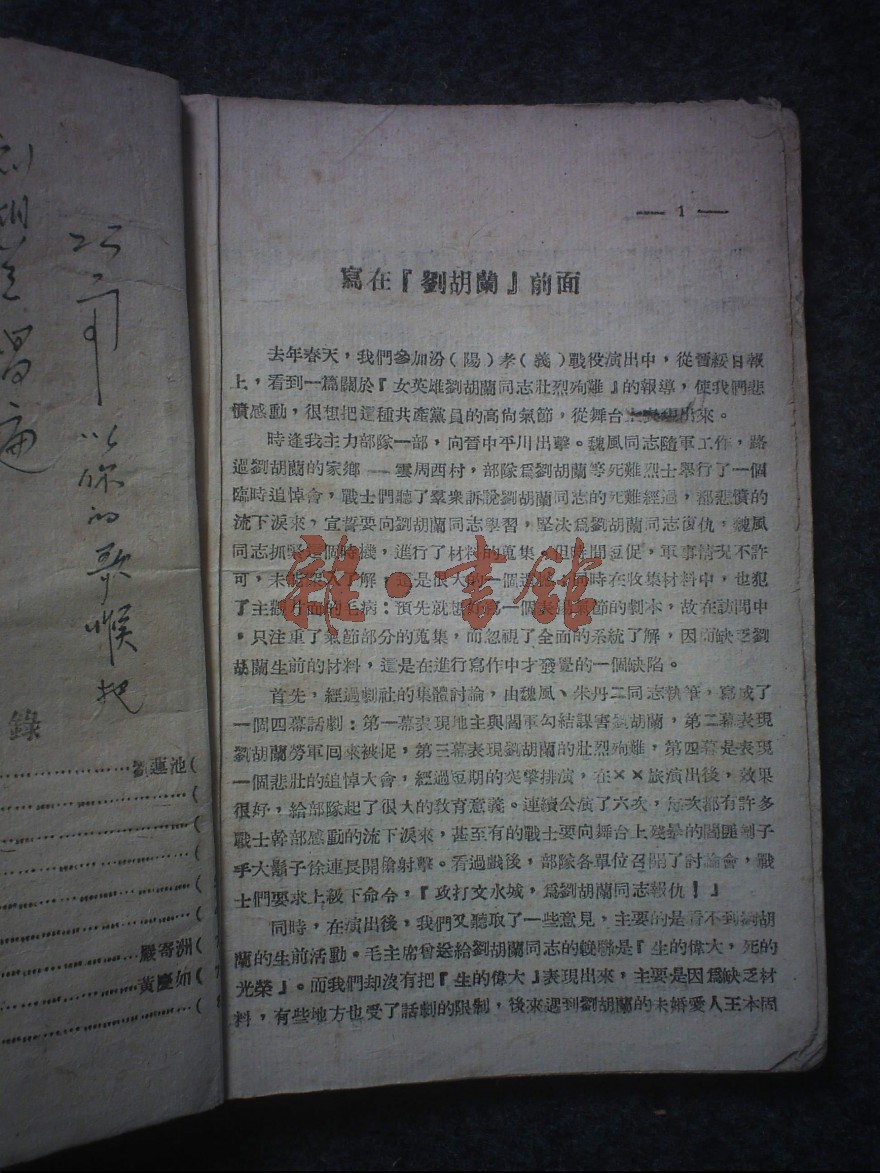 — 1 —
寫在『劉胡蘭』前面
去年春天，我們參加汾（陽）孝（義）戰役演出中，從晋綏日報
上，看到一篇關於『女英雄劉胡蘭同志壯烈殉難』的報導，使我們悲
憤感動，很想把這種共產黨員的高尙氣節，從舞台上表現出來。
時逢我主力部隊一部，向晉中平川出擊。魏風同志隨軍工作，路
過劉胡蘭的家鄉——雲周西村，部隊爲劉胡蘭等死難烈士舉行了一個
臨時追悼會，戰士們聽了羣衆訴說劉胡蘭同志的死難經過，都悲憤的
流下淚來，宣誓要向劉胡蘭同志學習，堅决爲劉胡蘭同志復仇，魏風
同志抓緊這個時機，進行了材料的蒐集。但時間短促，軍事情况不許
可，未能深入了解，這是很大的一個 同時在收集材料中，也犯
了主觀片面的毛病：預先就想好寫一個表現氣節的劇本，故在訪問中
，只注重了氣節部分的蒐集，而忽視了全面的系統了解，因而缺乏劉
胡蘭生前的材料，這是在進行寫作中才發覺的一個缺陷。
首先，經過劇社的集體討論，由魏風、朱丹二同志執筆，寫成了
一個四幕話劇：第一幕表現地主與閻軍勾結謀害劉胡蘭，第二幕表現
劉胡蘭勞軍回來被捉，第三幕表現劉胡蘭的壯烈殉難，第四幕是表現
一個悲壯的追悼大會，經過短期的突擊排演，在××旅演出後，效果
很好，給部隊起了很大的敎育意義。連續公演了六次，每次都有許多
戰士幹部感動的流下淚來，甚至有的戰士要向舞台上殘暴的閻匪劊子
手大鬍子徐連長開槍射擊。看過戲後，部隊各單位召開了討論會，戰
士們要求上級下命令，『攻打文水城，爲劉胡蘭同志報仇！』
同時，在演出後，我們又聽取了一些意見，主要的是看不到劉胡
蘭的生前活動。毛主席曾送給劉胡蘭同志的輓聯是『生的偉大，死的
光榮』。而我們却沒有把『生的偉大』表現出來，主要是因爲缺乏材
料，有些地方也受了話劇的限制，後來遇到劉胡蘭的未婚愛人王本固
以你的歌喉把
錄
劉蓮池（
嚴寄洲（
黃慶如（
雜·書館